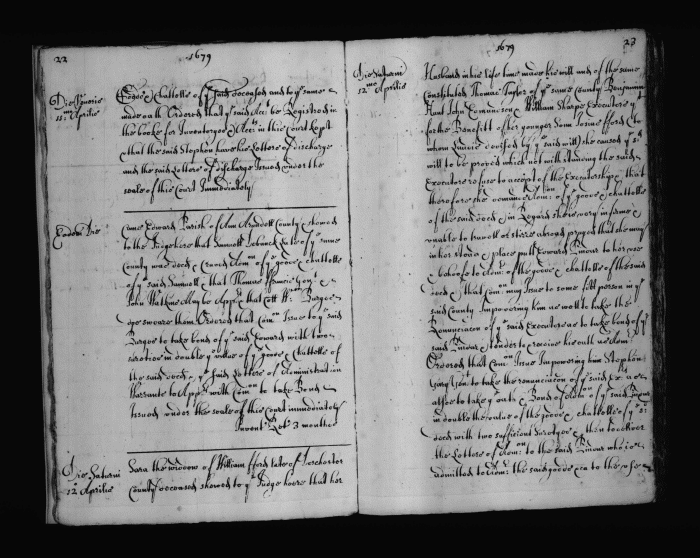 22
1679
Die Veneris
11: Aprilis
Goods & Chattells of ye said deceased and to ye same
made oath Ordered that ye said Acct. be Registred in
the booke for Inventoryes & Accts in this Court kept
& that the said Stephen have his Letters of discharge
and the said Letters of discharge Issued under the
seale of this Court Immediately
Eodem Die
Came Edward Parish of Ann Arundell County & shewed
to the Judge here that Samuell late of ye same
County was decd & Adm of ye goods & chattells
of ye said Samuell & that Thomas Francis Gent &
John Watkins May be Apprs that Coll Wm Burges
swear them Ordered that Comn Issue to ye said
Burges to take bond of ye said Edward with two
sureties in double ye vallue of ye goods & Chattells of
the said decd & ye said Letters of Administration
Warrante to Apprs with Comn to take Bond
Issued under the seale of this Court immediately
Invent Ret 3 months
Die Saturni
12 Aprilis
Sara the widdow of William fford late of Dorchester
County deceased shewed to ye Judge here that her
1679
23
Die Saturni
12mo Aprilis
Husband in his life time made his will and of the same
Constituted Thomas Taylor of ye same County Benjamin
Hunt John Edmondson & William Sharpe Executors &
for the Benefitt of her younger Sonn fford (to
whom devised by ye said will) she caused ye sd
will to be proved which not withstanding the said
Executors refuse to accept of the Executorship & that
therefore she Adm of ye goods & chattells
of the said decd in Regard she is very infirme &
unable to travell at soe prayed that she may
in her stead & place putt Edward Pindar to her use
& behoofe to Adm: of the goods & chattells of the said
decd & that Comn may Issue to some fitt person in ye
said County Impowering him as well to take the
Renunciacon of ye said Executors as to take bond of ye
said Pindar & order to receive his oath as Adm
Ordered that Comn Issue Impowering him Stephen
Gent to take the renunciacon of ye said
alsoe to take ye oath & Bond of Adm of ye said Pindar
in double the value of the goods & chattells of ye sd
decd with two sufficient Suretyes & then to deliver
the Letters of Adm: to the said Pindar who is
admitted to Adm: the said goods &ca to the use &